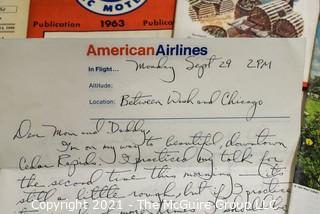 MOTE
Publication
1963
Publication
American Airlines
In Flight... Monday Sept 29 2PM
Altitude:
Location: Between Wash and Chicago
Dear Mom and Daddy,
I'm on my way to beautiful, downtown
Cedar Rapids. I practiced my talk for
the second time this morning - it's
still a little rough, but if I practice
Copyright © 2021 - The McGuire Group LLC